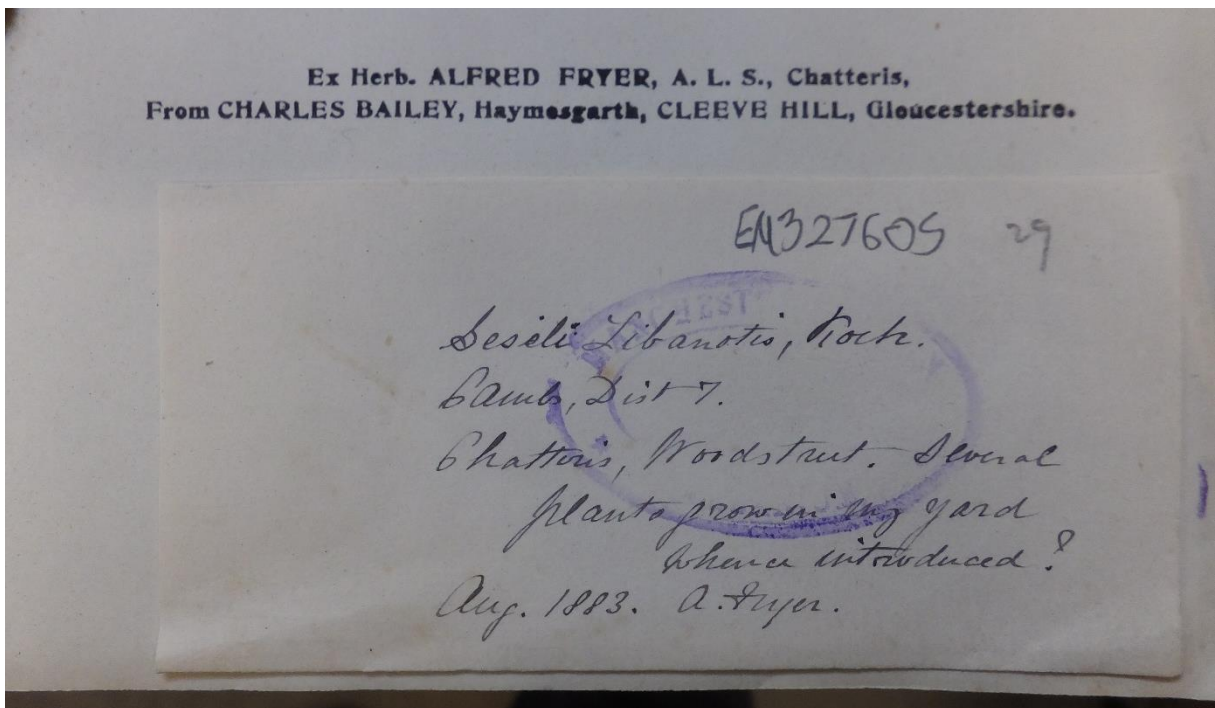 Ex Herb. ALFRED FRYER, A. L. S., Chatteris,
From CHARLES BAILEY, Haymesgarth, CLEEVE HILL, Gloucestershire.
EM327605 29
MANCHEST
Seseli Libanotis, Koch.
Cambs, Dist 7.
Chatteris, Woodstreet. Several
plants grow in my yard
whence introduced?
Aug. 1883. A. Fryer.